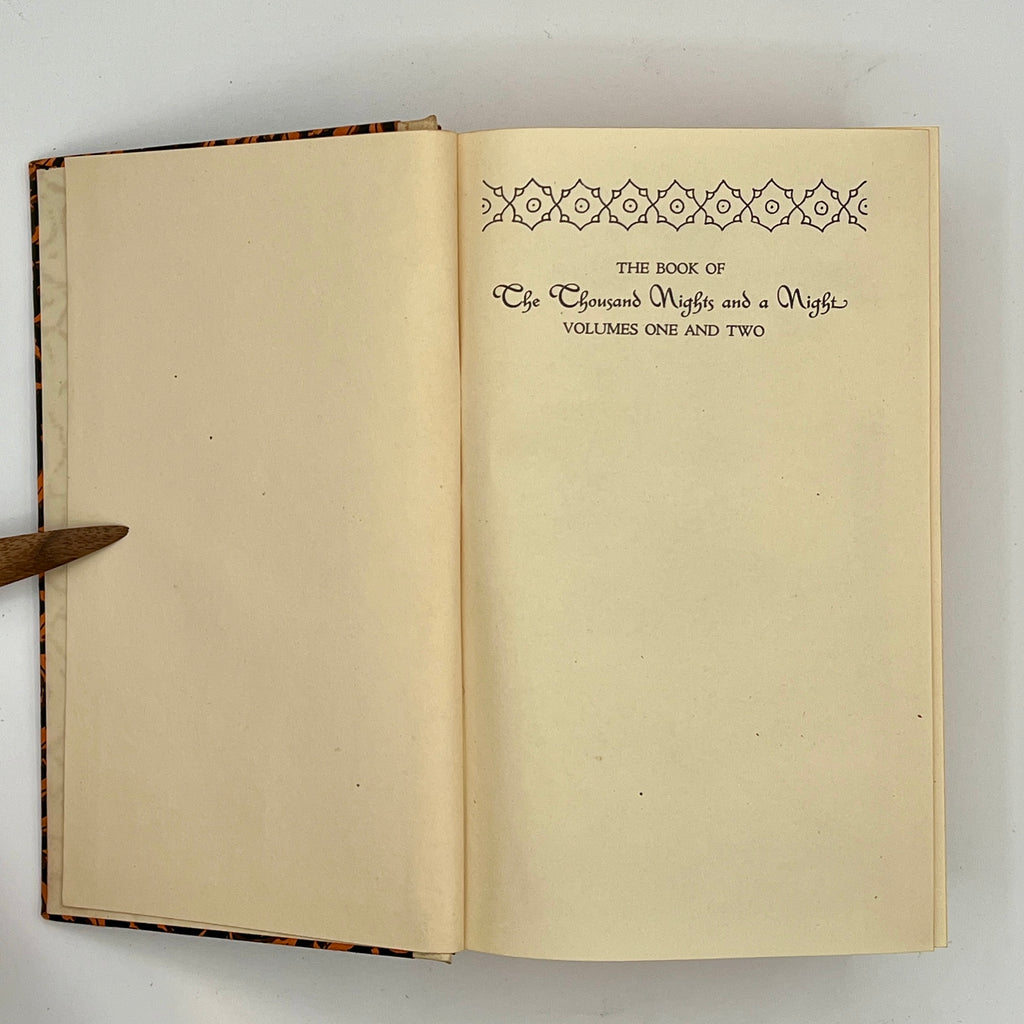 THE BOOK OF
The Thousand Nights and a Night
VOLUMES ONE AND TWO